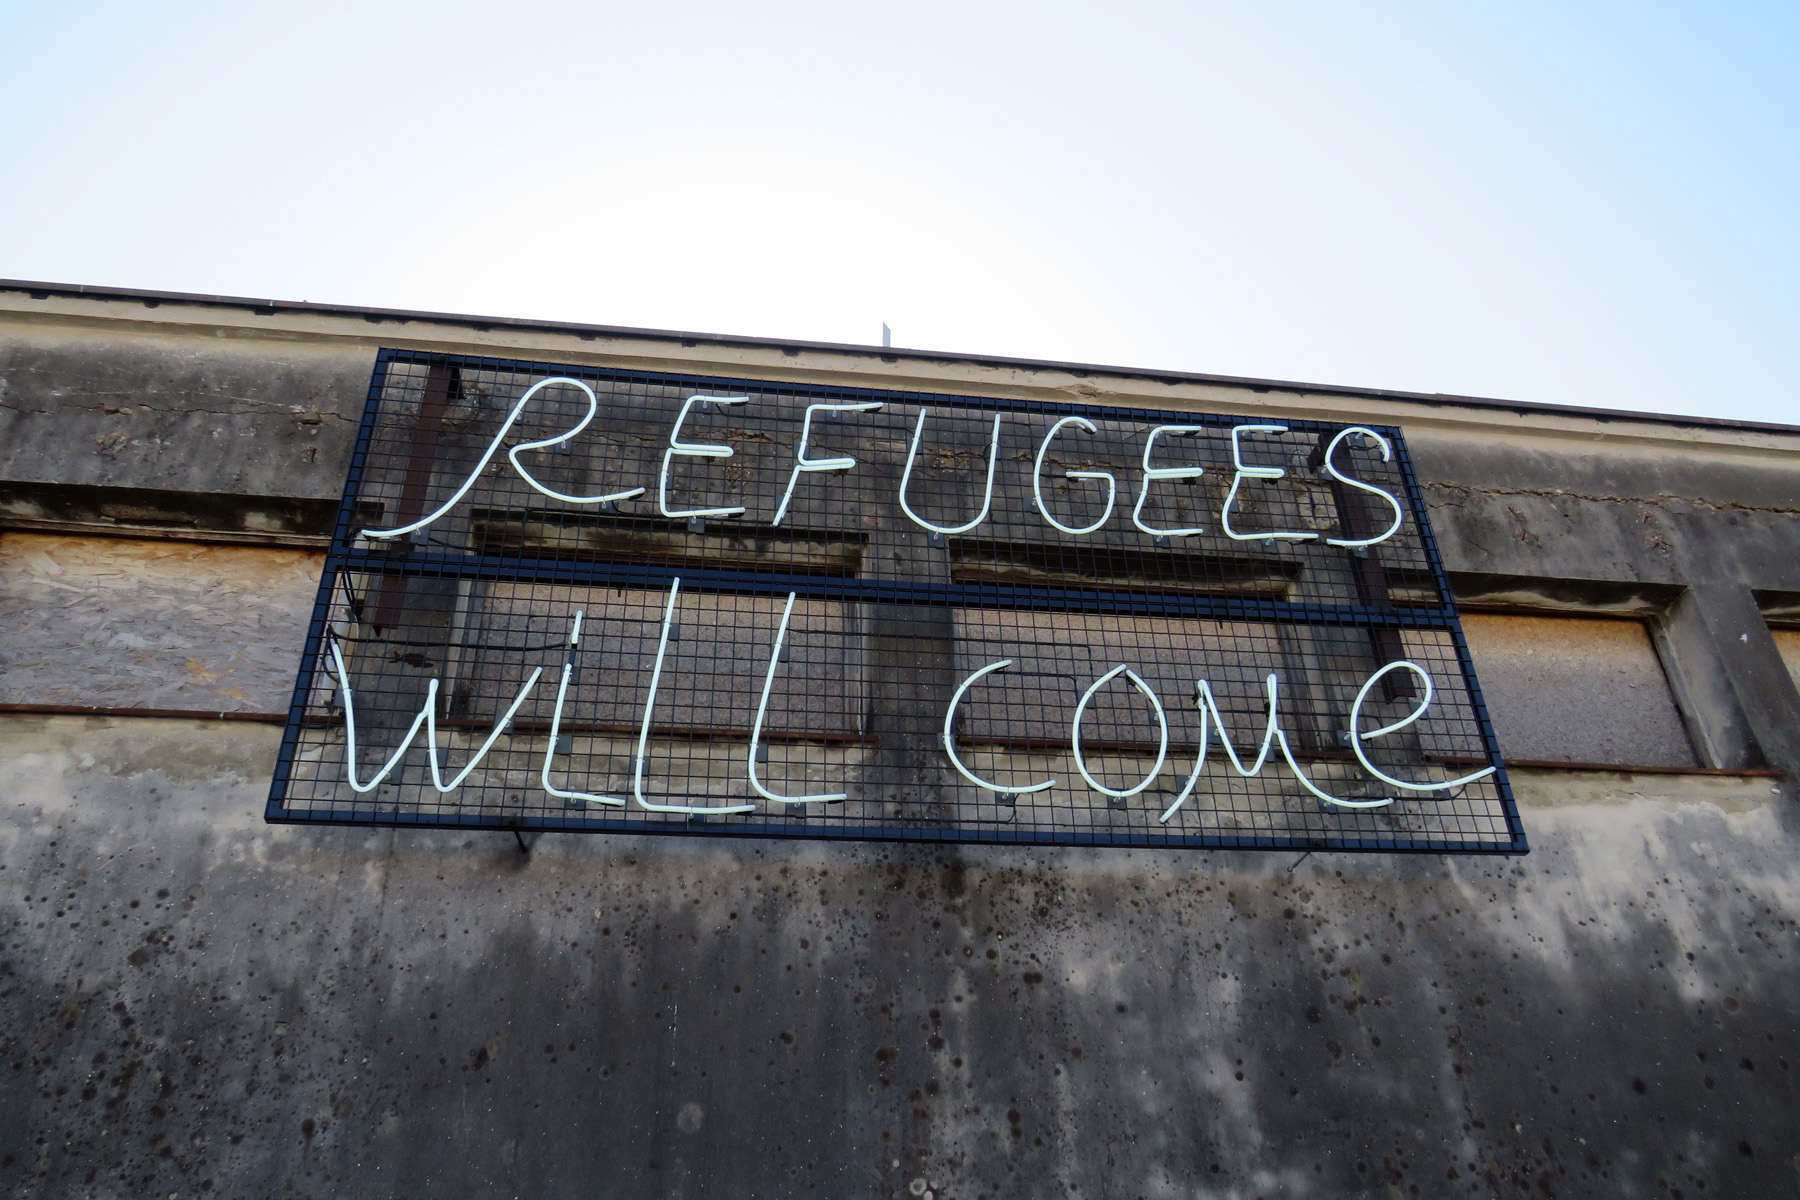 REFUGEES
WiLL COMe